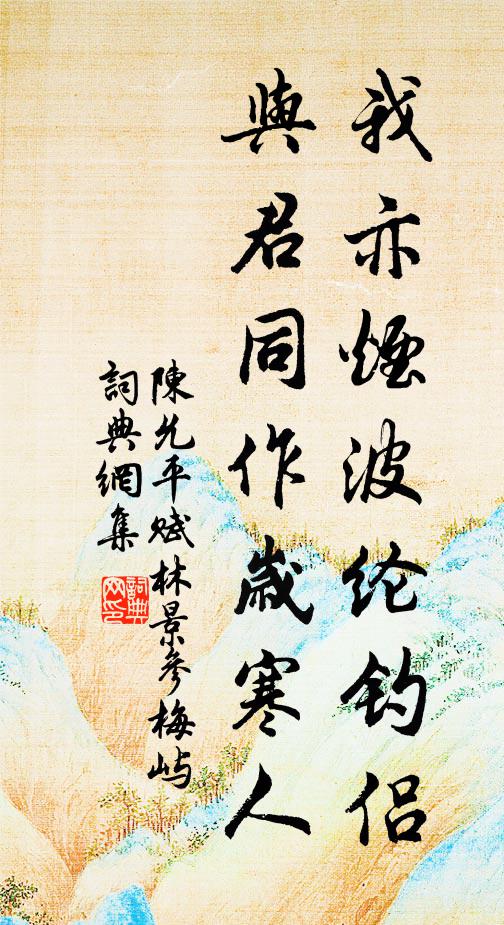 我亦煙波纶钓侣
與君同作歳寒人
陳允平赋林景參梅屿
詞典網集
詞典